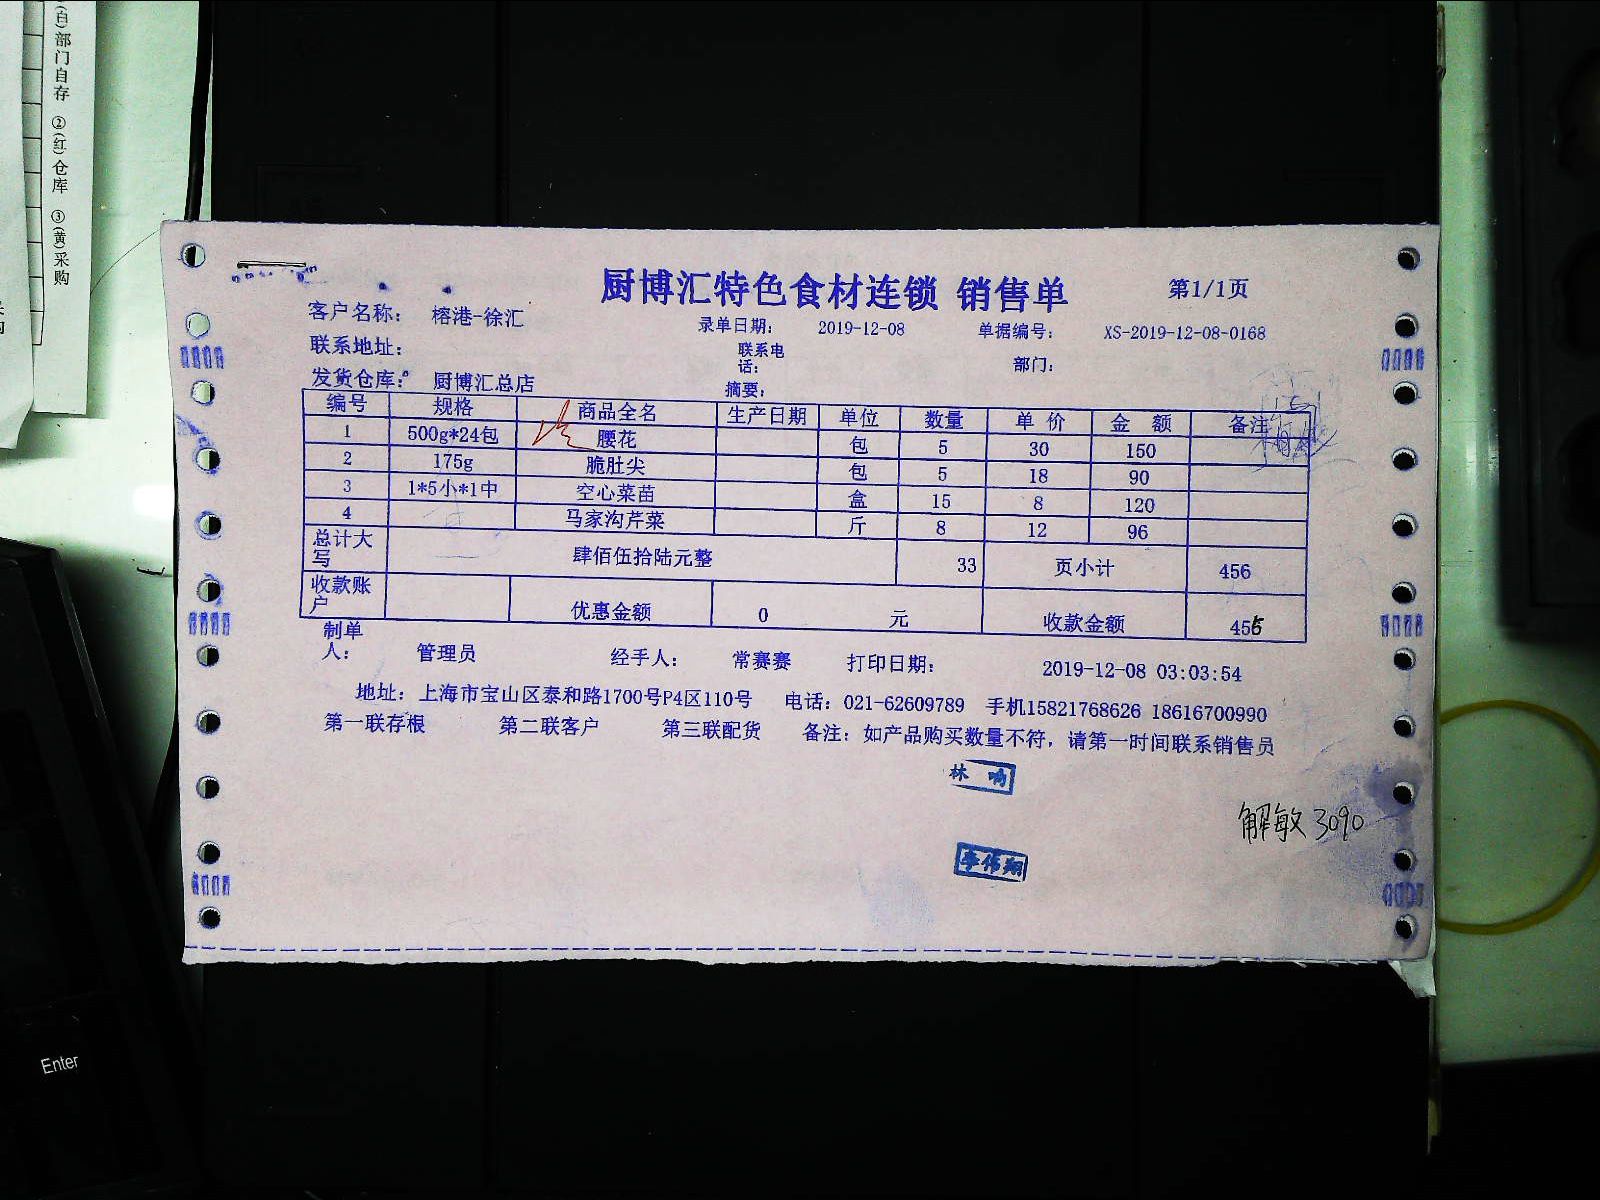 (白)部门自存 ②(红)仓库 ③(黄)采购
厨博汇特色食材连锁 销售单 第1/1页
客户名称： 榕港-徐汇 录单日期： 2019-12-08 单据编号： XS-2019-12-08-0168
联系地址： 联系电话： 部门：
发货仓库： 厨博汇总店 摘要：
编号 规格 商品全名 生产日期 单位 数量 单 价 金 额 备注
1 500g*24包 腰花 包 5 30 150
2 175g 脆肚尖 包 5 18 90
3 1*5小*1中 空心菜苗 盒 15 8 120
4 马家沟芹菜 斤 8 12 96
总计大写 肆佰伍拾陆元整 33 页小计 456
收款账户 优惠金额 0 元 收款金额 455
制单人： 管理员 经手人： 常赛赛 打印日期： 2019-12-08 03:03:54
地址：上海市宝山区泰和路1700号P4区110号 电话：021-62609789 手机15821768626 18616700990
第一联存根 第二联客户 第三联配货 备注：如产品购买数量不符，请第一时间联系销售员
林 响
解敏 3090
李伟翔
Enter